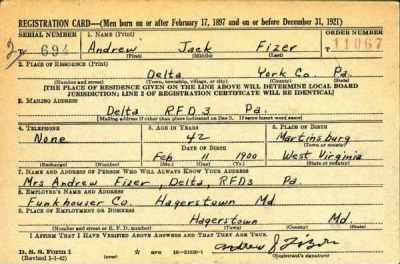 REGISTRATION CARD—(Men born on or after February 17, 1897 and on or before December 31, 1921)
SERIAL NUMBER 1. NAME (Print) ORDER NUMBER
694 Andrew Jack Fizer 11067
(First) (Middle) (Last)
2. PLACE OF RESIDENCE (Print)
Delta York Co. Pa.
(Number and street) (Town, township, village, or city) (County) (State)
[THE PLACE OF RESIDENCE GIVEN ON THE LINE ABOVE WILL DETERMINE LOCAL BOARD
JURISDICTION; LINE 2 OF REGISTRATION CERTIFICATE WILL BE IDENTICAL]
3. MAILING ADDRESS
Delta R.F.D. 3 Pa.
[Mailing address if other than place indicated on line 2. If same insert word same]
4. TELEPHONE 5. AGE IN YEARS 6. PLACE OF BIRTH
None 42 Martinsburg
DATE OF BIRTH (Town or county)
Feb 11 1900 West Virginia
(Exchange) (Number) (Mo.) (Day) (Yr.) (State or country)
7. NAME AND ADDRESS OF PERSON WHO WILL ALWAYS KNOW YOUR ADDRESS
Mrs Andrew Fizer, Delta, RFD3 Pa.
8. EMPLOYER'S NAME AND ADDRESS
Funkhouser Co. Hagerstown Md
9. PLACE OF EMPLOYMENT OR BUSINESS
Hagerstown Md.
(Number and street or R. F. D. number) (Town) (County) (State)
I AFFIRM THAT I HAVE VERIFIED ABOVE ANSWERS AND THAT THEY ARE TRUE.
D. S. S. Form 1 GPO Andrew J Fizer
(Revised 1-1-42) (Registrant's signature)